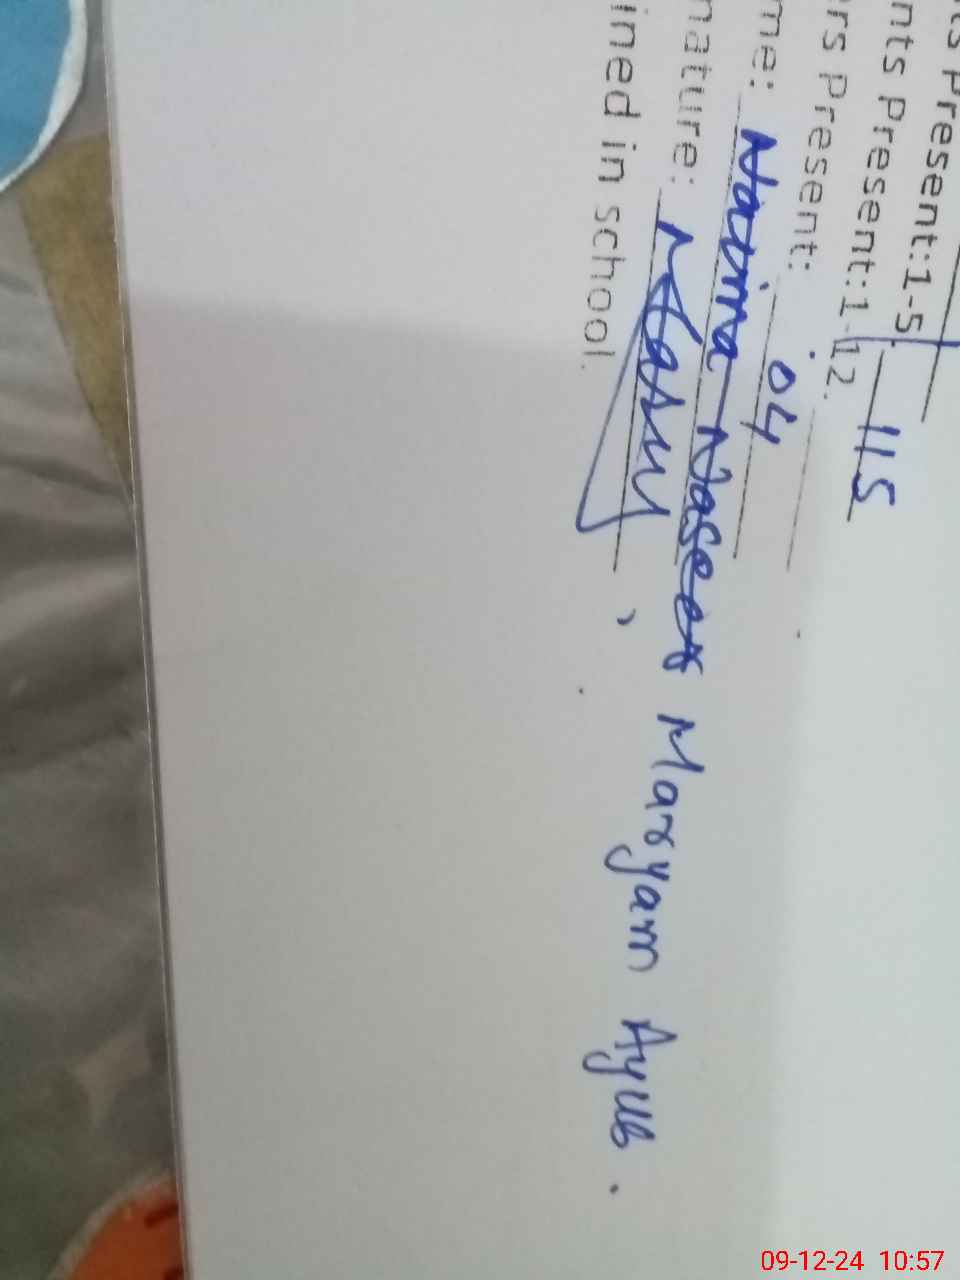 ts Present:1-5.
nts Present:1-12. 115
ers Present: 04
me: Naima Naseer Maryam Ayub.
nature:
ined in school.
09-12-24 10:57